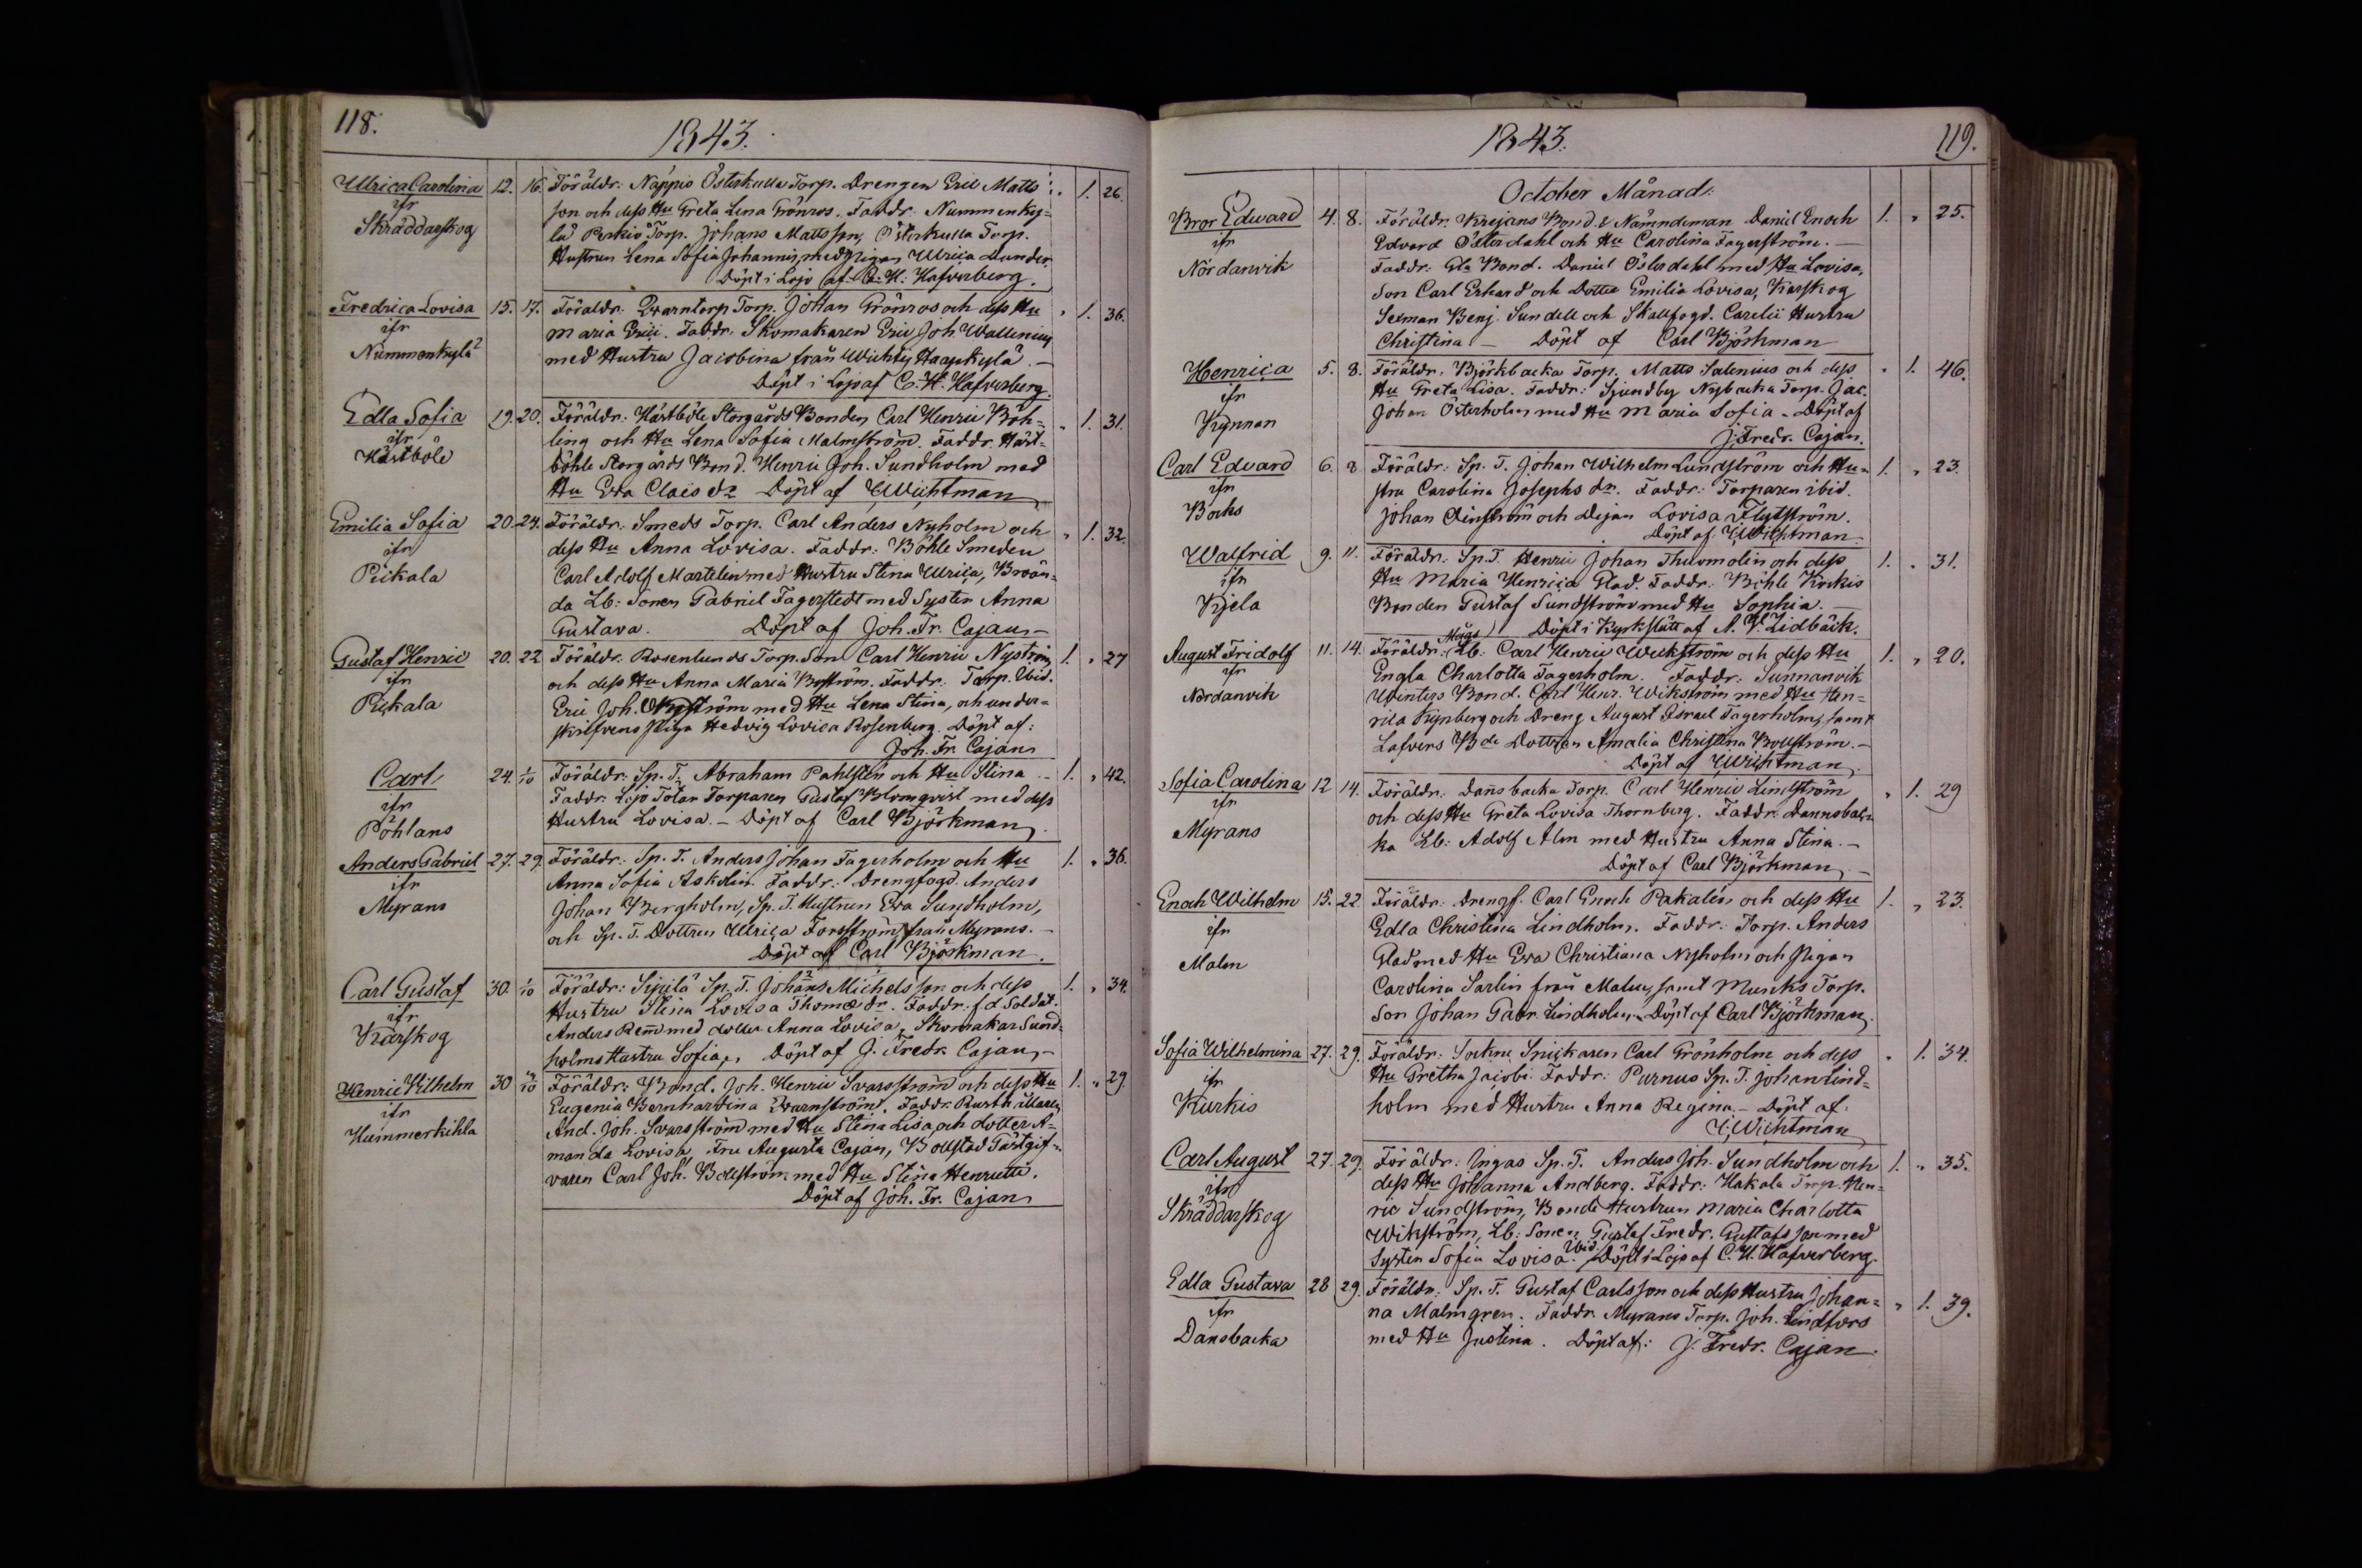 118.
1843.
Ulrica Carolina 12. 16. Föräldr: Nappis Österkulla Torp. Drengen Eric Matts " 1. 26.
ifr son och dess Hu Greta Lena Grönros. Faddr: Nummenky=
Skräddarskog lä Torp. Johans Mattsson, Österkulla Torp.
Hustrun Lena Sofia Johannis, med Pigan Ulrica
Döpt i Lojo af C. H. Hafverberg.
Fredrica Lovisa 15. 17. Föräldr: Qvarntorp Torp. Johan Grönros och dess Hu " 1. 36.
ifr Maria Erici. Faddr. Skomakaren Eric Joh. Wallenius
Nummenkylä med Hustru Jacobina från Wichtis Haapkylä. —
Döpt i Lojo af C. H. Hafverberg.
Edla Sofia 19. 20. Föräldr: Hästböle Storgårds Bonden Carl Henric Böh= " 1. 31.
ifr ling och Hu Lena Sofia Malmström. Faddr. Häst=
Hästböle böhle Storgårds Bond. Henric Joh. Sundholm med
Hu Eva Clais dr Döpt af Wichtman
Emilia Sofia 20. 24. Föräldr: Smeds Torp. Carl Anders Nyholm och " 1. 32.
ifr dess Hu Anna Lovisa. Faddr: Böhle Smeden
Pickala Carl Adolf Martelin med Hustru Stina Ulrica,
da Lb: Sonen Gabriel Fagerstedt med Syster Anna
Gustava. Döpt af Joh. Fr. Cajan —
Gustaf Henric 20. 22 Föräldr: Rosenlunds Torp. Son Carl Henric Nyström 1. " 27
ifr och dess Hu Anna Maria Boström. Faddr: Torp. Ibid.
Pickala Eric Joh. Nyström med Hu Lena Stina, och under=
skrifvens Piga Hedvig Lovisa Rosenberg. Döpt af:
Joh. Fr. Cajan
Carl 24. 1/10 Föräldr: Sp. T. Abraham Pahlsten och Hu Stina — 1. " 42.
ifr Faddr: Lojo Totar Torparen Gustaf Blomqvist med dess
Pöhlans Hustru Lovisa. — Döpt af Carl Björkman.
Anders Gabriel 27. 29. Föräldr: Sp. T. Anders Johan Fagerholm och Hu 1. " 36.
ifr Anna Sofia Askolin. Faddr: Drengfogd. Anders
Myrans Johan Bergholm, Sp. T. Hustrun Eva Sundholm,
och Sp. T. Dottren Ulrica Forsström från Myrans. —
Döpt af Carl Björkman.
Carl Gustaf 30. 1/10 Föräldr: Sipilä Sp. T. Johans Michelsson och dess 1. " 34.
ifr Hustru Stina Lovisa Thomæ dr. Faddr. f.d. Soldat.
Karskog Anders Remmed dotter Anna Lovisa, Skomakar Sund=
holms Hustru Sofia, Döpt af J. Fredr. Cajan —
Henric Wilhelm 30 Föräldr: Bond. Joh. Henric Svarsström och dess Hu 1. " 29.
ifr Eugenia Bernhardina Qvarnström. Faddr. Rusthållaren
Hummerkihla And. Joh. Svarsström med Hu Stina Lisa och dotter A=
manda Lovisa, Fru Augusta Cajan, Bollstad Gästgif=
varen Carl Joh. Bollström med Hu Stina Henrietta.
Döpt af Joh. Fr. Cajan
1843.
119.
October Månad:
Bror Edward 4. 8. Föräldr. Krejans Bond. & Nämndeman Daniel Enoch 1. " 25.
ifr Edvard Österdahl och Hu Carolina Fagerström. —
Nordanvik Faddr: Gla Bond. Daniel Österdahl med Hu Lovisa,
Son Carl Erhard och Dotter Emilia Lovisa, Karskog
Sexman Benj. Sundell och Skallfogd. Carelii Hustru
Christina — Döpt af Carl Björkman
Henrica 5. 8. Föräldr. Björkbacka Torp. Matts Salenius och dess " 1. 46.
ifr Hu Greta Lisa. Faddr: Sjundby Nybacka Torp. Jac.
Kynnan Johan Österholm med Hu Maria Sofia. Döpt af
J. Fredr. Cajan.
Carl Edvard 6. 8 Föräldr: Sp. T. Johan Wilhelm Lundström och Hu= 1. " 23.
ifr stru Carolina Josephs dr. Faddr: Torparen ibid.
Bocks Johan och Dejan Lovisa Flytström.
Döpt af Wichtman
Walfrid 9. 11. Föräldr: Sp. T. Henric Johan Thurmolin och dess 1. " 31.
ifr Hu Maria Henrica Glad. Faddr: Böhle Krokis
Kjela Bonden Gustaf Sundström med Hu Sophia. —
Döpt i Kyrkslätt af A. W. Lidbäck.
August Fridolf 11. 14. Föräldr: Mågs Lb: Carl Henric Wickström och dess Hu 1. " 20.
ifr Engla Charlotta Fagerholm. Faddr: Sunnanvik
Nordanvik Winters Bond. Carl Henr. Wikström med Hu Hen=
rica Kynberg och Dreng August Israel Fagerholm, samt
Lafvers Bde Dottren Amalia Christina Bollström. —
Döpt af Wichtman
Sofia Carolina 12 14. Föräldr: Dansbacka Torp. Carl Henric Lindström " 1. 29
ifr och dess Hu Greta Lovisa Thornberg. Faddr. Dannsbac=
Myrans ka Lb: Adolf Alm med Hustru Anna Stina. —
Döpt af Carl Björkman —
Enoch Wilhelm 15. 22. Föräldr: Drengf. Carl Enoch Pakalén och dess Hu 1. " 23.
ifr Edla Christina Lindholm. Faddr: Torp. Anders
Malm Glad med Hu Eva Christiana Nyholm och Pigan
Carolina Sarlin från Malm, samt Muncks Torp.
Son Johan Gabr. Lindholm. Döpt af Carl Björkman.
Sofia Wilhelmina 27. 29. Föräldr: Sockne Snickaren Carl Grönholm och dess " 1. 34.
ifr Hu Gretha Jacobi. Faddr: Purnus Sp. T. Johan Lind=
Kurkis holm med Hustru Anna Regina — Döpt af:
Wichtman
Carl August 27. 29. Föräldr: Ingas Sp. T. Anders Joh. Sundholm och 1. " 35.
ifr dess Hu Johanna Andberg. Faddr: Hakala Torp. Hen=
Skräddarskog ric Sundström, Bonde Hustrun Maria Charlotta
Wikström, Lb: Sonen Gustaf Fredr. Gustafsson med
Systen Sofia Lovisa Ibid. Döpt i Lojo af C. H. Hafverberg.
Edla Gustava 28 29. Föräldr: Sp. T. Gustaf Carlsson och dess Hustru Johan= " 1. 39.
ifr na Malmgren. Faddr. Myrans Torp. Joh. Lindfors
Dansbacka med Hu Justina. Döpt af: J. Fredr. Cajan.